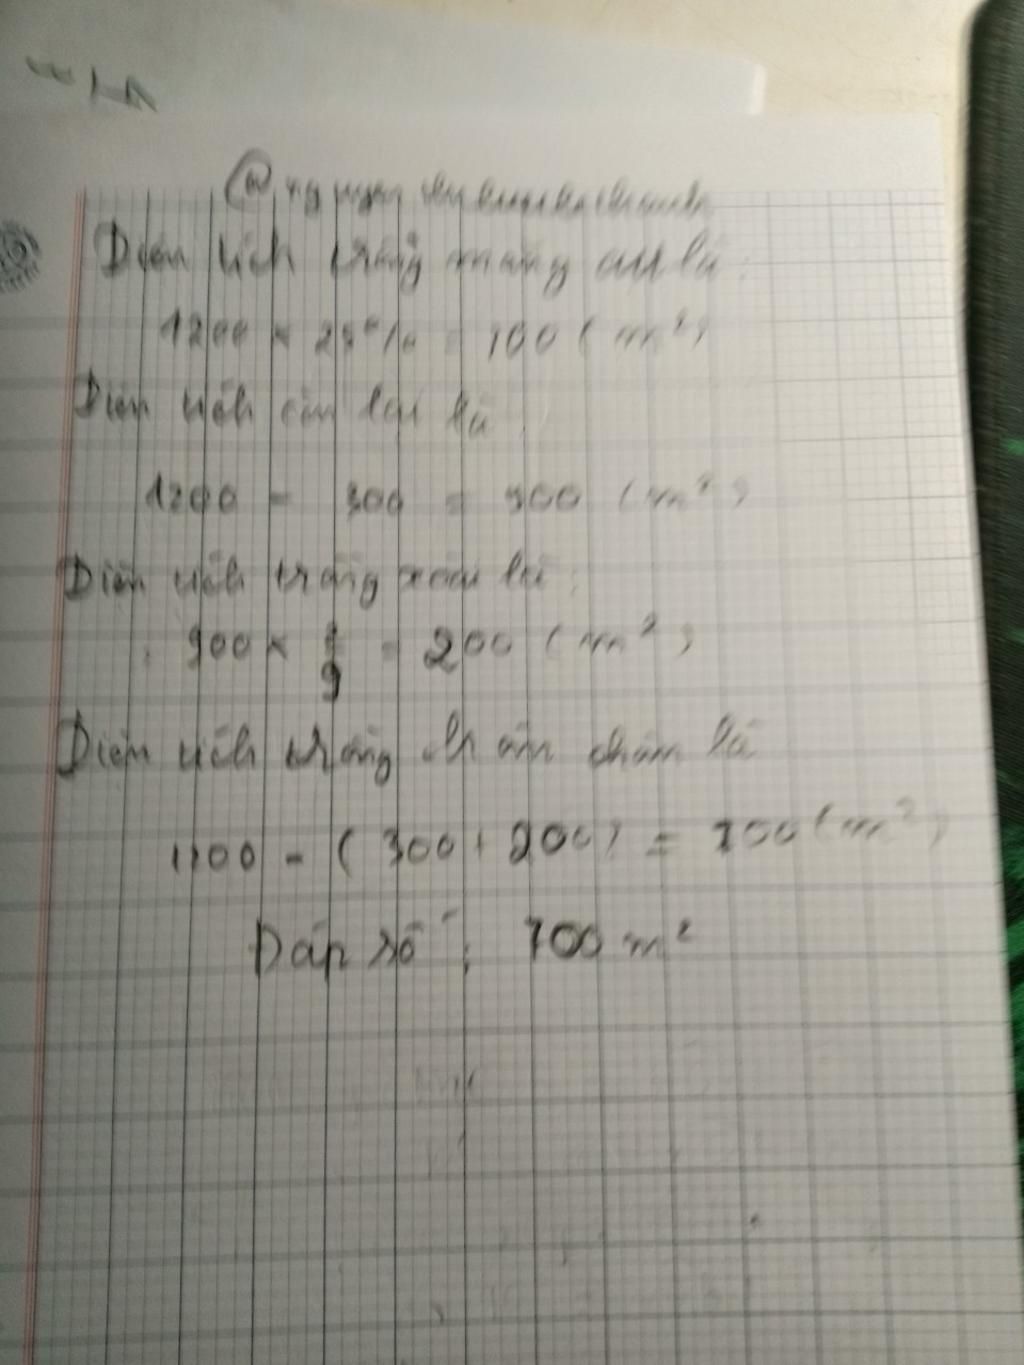 Diện tích trồng măng cụt là:
1200 × 25% = 300 (m²)
Diện tích còn lại là
1200 - 300 = 900 (m²)
Diện tích trồng xoài là:
900 × 9 = 200 (m²)
Diện tích trồng chôm chôm là
1200 - (300 + 200) = 700 (m²)
Đáp số: 700 m²